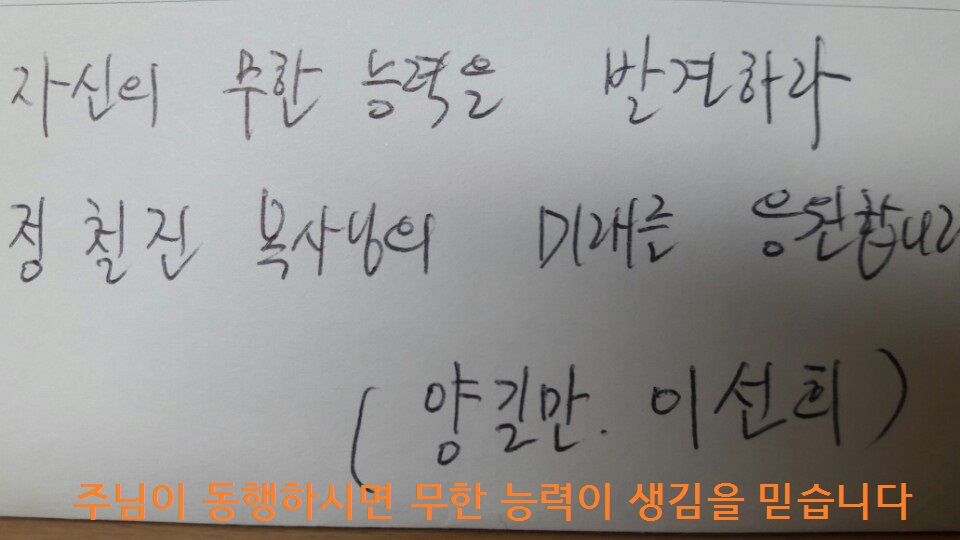 자신의 무한 능력을 발견하라
정칠진 목사님의 미래를 응원합니다
(양길만. 이선희)
주님이 동행하시면 무한 능력이 생김을 믿습니다